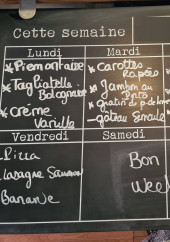 Cette semaine
Lundi
* Piemontaise
* Tagliatelle
Bolognaise
* crème
Vanille
Mardi
* carottes
Rapées
* Jambon au
Porto
* gratin de p-de terre
- gâteau Semoule
Vendredi
- Pizza
- Lasagne Saumon
Banane
Samedi
Bon
Week